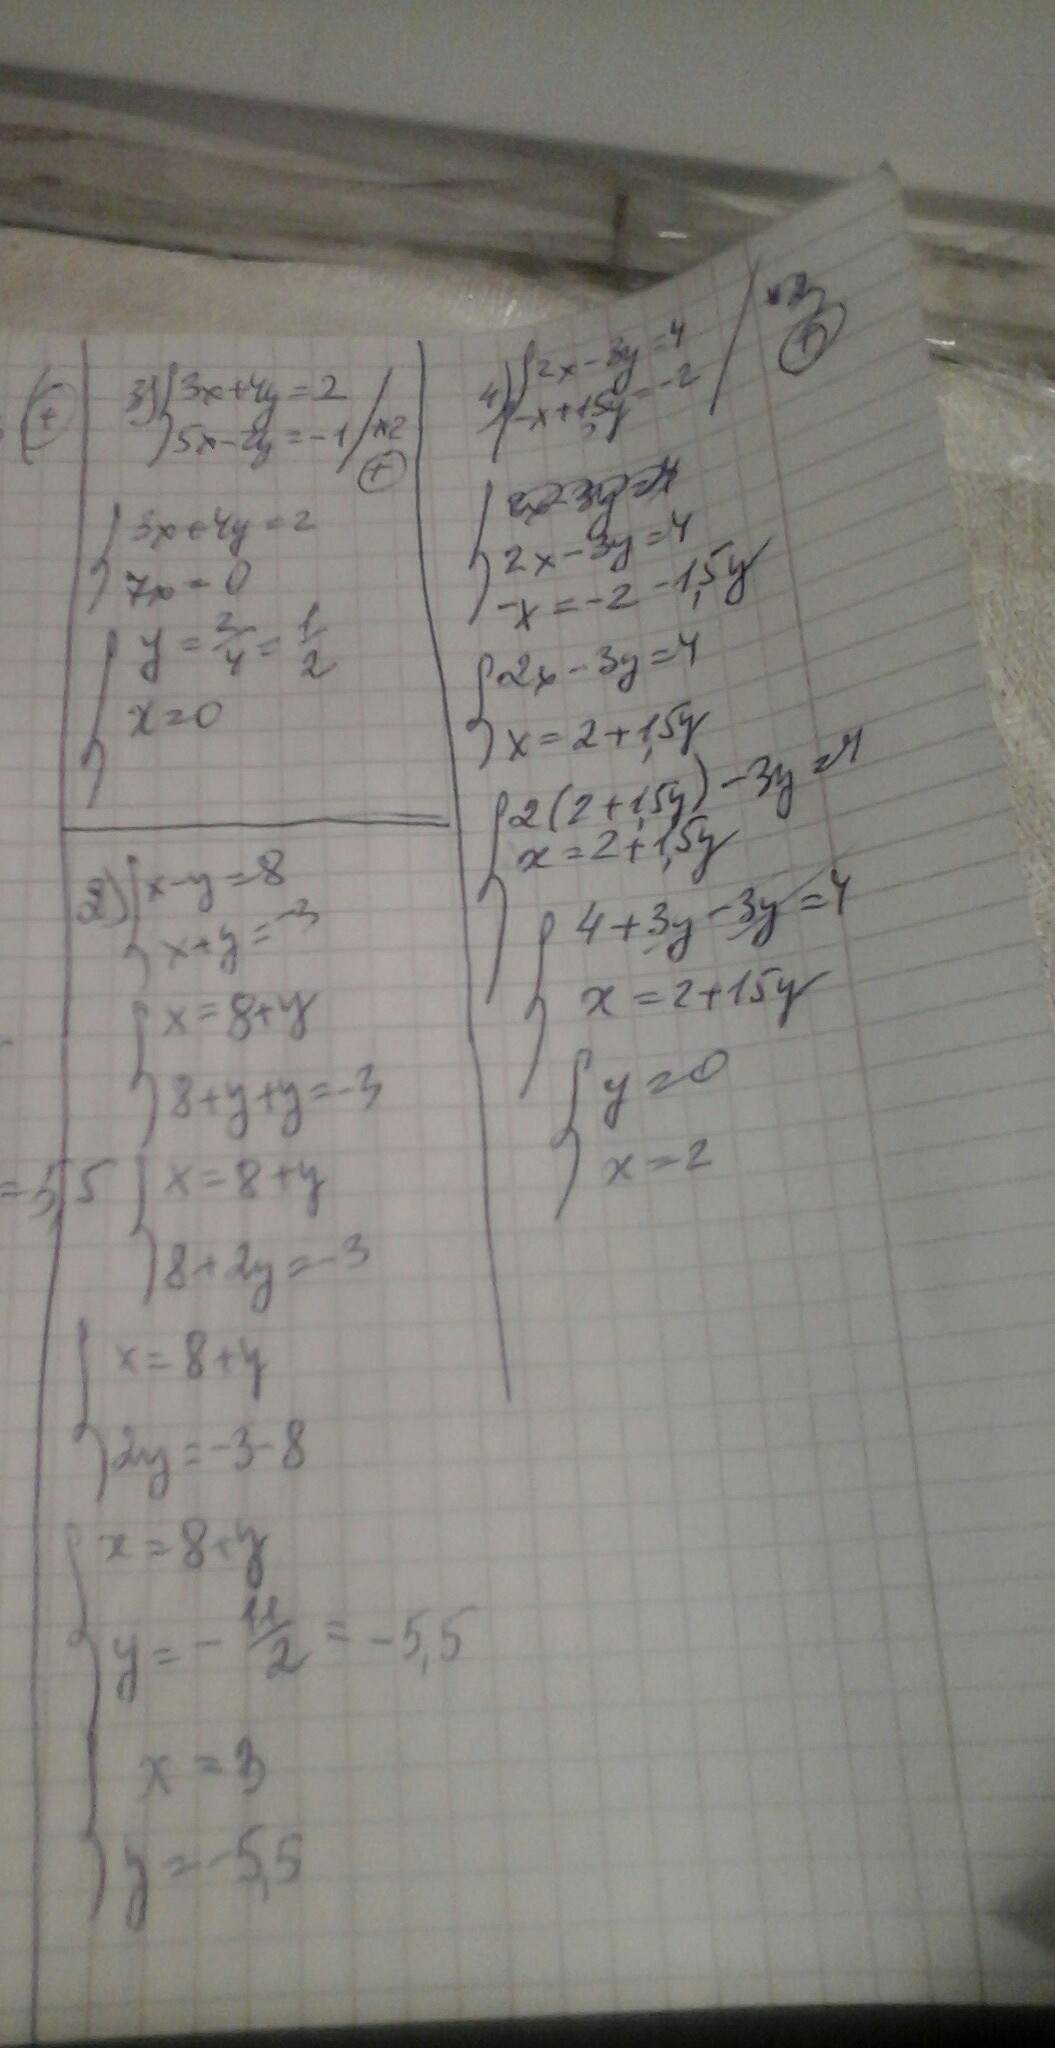 (+)
3) 3x+4y=2
5x-2y=-1 /*2
(+)
3x+4y=2
7x=0
y=2/4=1/2
x=0
2) x-y=8
x+y=-3
x=8+y
8+y+y=-3
=5,5
x=8+y
8+2y=-3
x=8+y
2y=-3-8
x=8+y
y=-11/2=-5,5
x=3
y=-5,5
4) 2x-3y=4
-x+1,5y=-2
(+)
2x-3y=4
-x=-2-1,5y
2x-3y=4
x=2+1,5y
2(2+1,5y)-3y=4
x=2+1,5y
4+3y-3y=4
x=2+15y
y=0
x=2